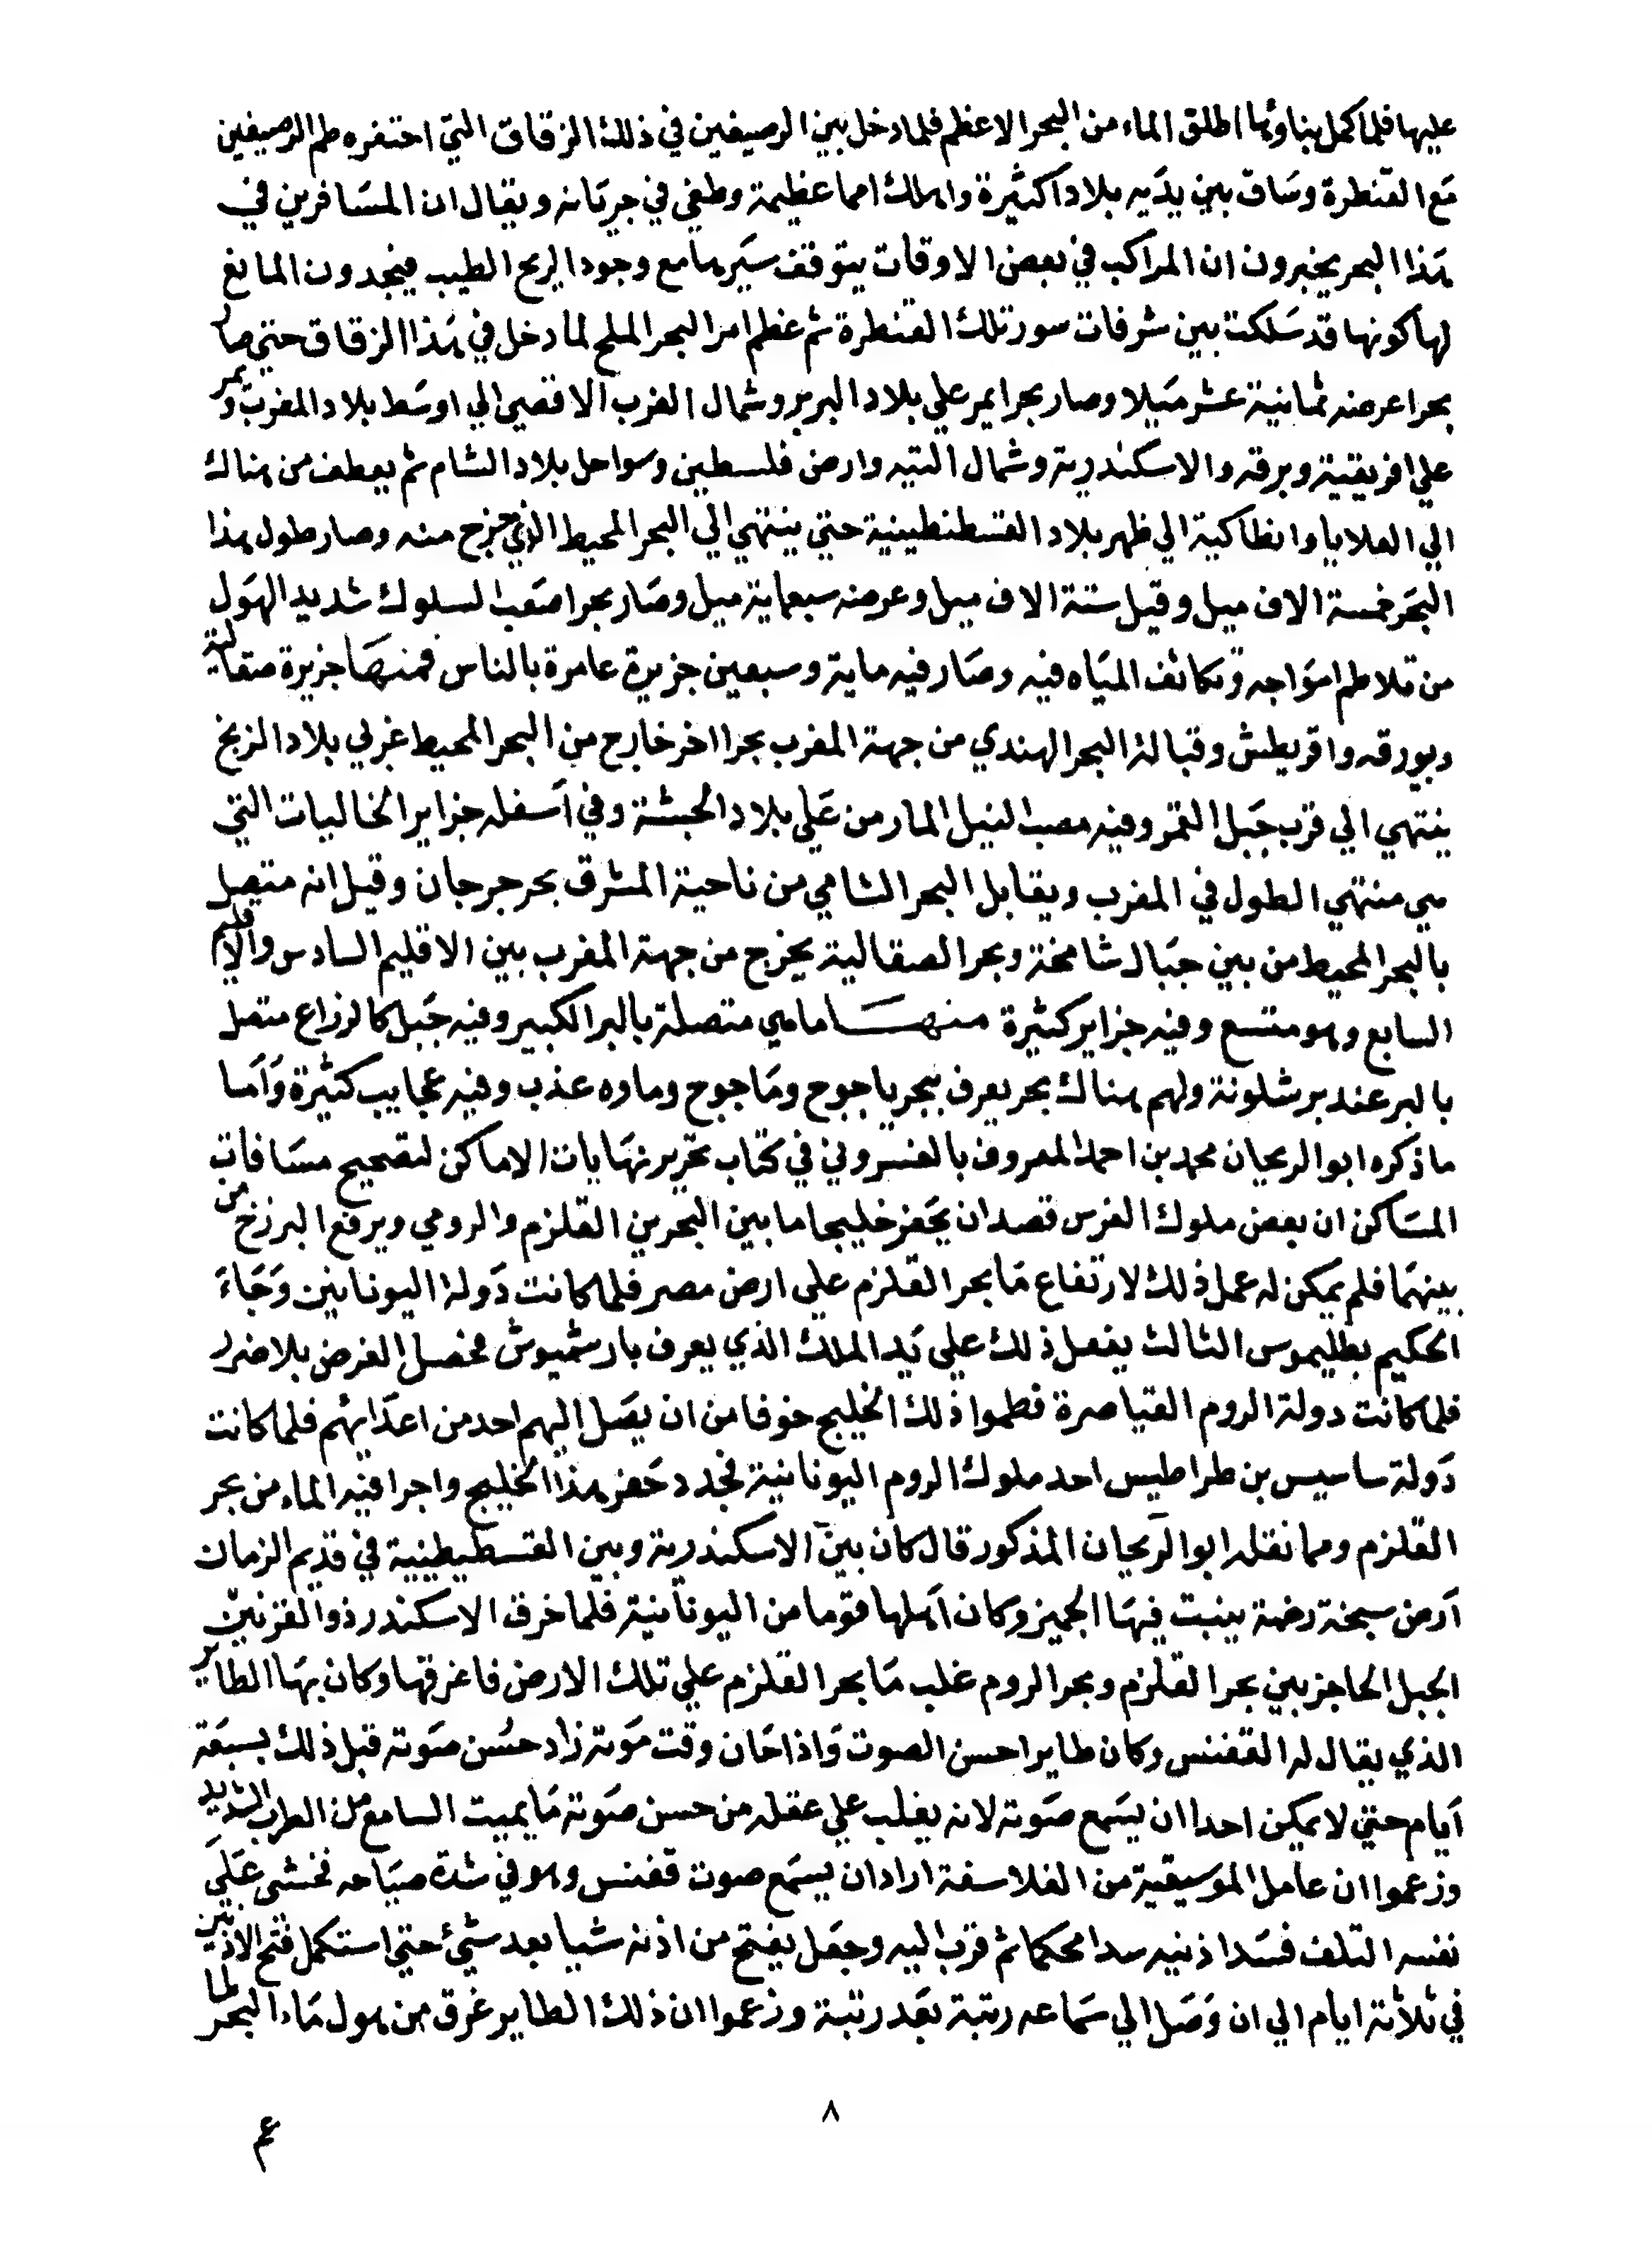 عليها فلما كمل بناوها اطلق الماء من البحر الاعظم فلما دخل بين الرصيفين في ذلك الزقاق التي احتفره طم الرصيفين
مع القنطرة وساق بين يديه بلادا كثيرة واهلك امما عظيمة وطغي في جريانه ويقال ان المسافرين في
هذا البحر يخبرون ان المراكب في بعض الاوقات يتوقف سيرها مع وجود الريح الطيب فيجدون المانع
لها كونها قد سلكت بين شرفات سور تلك القنطرة ثم عظم امر البحر الملح لما دخل في هذا الزقاق حتي صار
بحرا عرضه ثمانية عشر ميلا وصار بحرا يمر علي بلاد البربر وشمال الغرب الاقصي الي اوسط بلاد المغرب ويمر
علي افريقية وبرقه والاسكندرية وشمال التيه وارض فلسطين وسواحل بلاد الشام ثم يعطف من هناك
الي العلايا وانطاكية الي ظهر بلاد القسطنطينية حتي ينتهي الي البحر المحيط الذي خرج منه وصار طول هذا
البحر خمسة الاف ميل وقيل ستة الاف ميل وعرضه سبعماية ميل وصار بحرا صعب السلوك شديد الهول
من تلاطم امواجه وتكاثف المياه فيه وصار فيه ماية وسبعين جزيرة عامرة بالناس فمنها جزيرة صقالية
وبورقه واقريطش وقبالة البحر الهندي من جهة المغرب بحرا اخر خارج من البحر المحيط غربي بلاد الزنج
ينتهي الي قرب جبل القمر وفيه مصب النيل المار من علي بلاد الحبشة وفي اسفله جزاير الخاليات التي
هي منتهي الطول في المغرب ويقابل البحر الشامي من ناحية المشرق بحر جرجان وقيل انه متصل
بالبحر المحيط من بين جبال شامخة وبحر الصقالية يخرج من جهة المغرب بين الاقليم السادس والاقليم
السابع وهو متسع وفيه جزاير كثيرة منها ما هي متصلة بالبر الكبير وفيه جبل كالزراع متصل
بالبر عند برشلونة ولهم هناك بحر يعرف ببحر ياجوج وماجوج وماوه عذب وفيه عجايب كثيرة واما
ما ذكره ابو الريحان محمد بن احمد المعروف في كتاب تحرير نهايات الاماكن لتصحيح مسافات
المساكن ان بعض ملوك الفرس قصد ان يحفر خليجا ما بين البحرين القلزم والرومي ويرفع البرزخ من
بينهما فلم يمكن له عمل ذلك لارتفاع ما بحر القلزم علي ارض مصر فلما كانت دولة اليونانين وجاء
الحكيم بطليموس الثالث بفعل ذلك علي يد الملك الذي يعرف بارشميوش فحصل الغرض بلا ضرر
فلما كانت دولة الروم القياصرة فطموا ذلك الخليج خوفا من ان يصل اليهم احد من اعدايهم فلما كانت
دولة ساسيس بن طراطيس احد ملوك الروم اليونانية فجدد حفر هذا الخليج واجرا فيه الماء من بحر
القلزم ومما نقله ابو الريحان المذكور قال كان بين الاسكندرية وبين القسطيطينية في قديم الزمان
ارض سبخة رخمة ينبت فيها الجميز وكان اهلها قوما من اليونانية فلما خرق الاسكندر ذو القرنين
الجبل الحاجز بين بحر القلزم وبحر الروم غلب ما بحر القلزم علي تلك الارض فاغرقها وكان بها الطاير
الذي يقال له القفنس وكان طايرا حسن الصوت واذا حان وقت موته زاد حسن صوته قبل ذلك بسبعة
ايام حتي لا يمكن احدا ان يسمع صوته لانه يغلب علي عقله من حسن صوته ما يميت السامع من الطرب الشديد
وزعموا ان عامل الموسيقية من الفلاسفة اراد ان يسمع صوت قفنس وهو في شدة صياحه فخشي علي
نفسه التلف فسد اذنيه سدا محكما ثم قرب اليه وجعل يفتح من اذنه شيا بعد شئ حتي استكمل فتح الاذنين
في ثلاثة ايام الي ان وصل الي سماعه رتبة بعد رتبة وزعموا ان ذلك الطاير غرق من هول ماء البحر لما
٨
عم